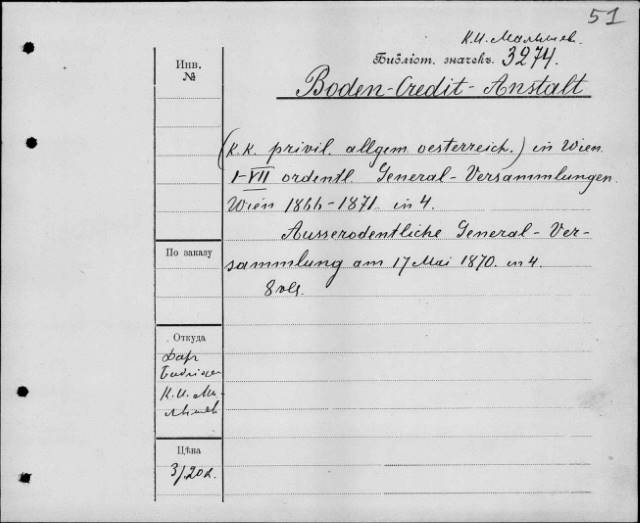 51
К.И. Малышев.
Библіот. значекъ 3274.
Инв.
№
Boden-Credit-Anstalt
(K.K. privil. allgem. oesterreich.) in Wien.
I-VII ordentl. General-Versammlungen.
Wien 1866-1871. in 4.
Ausserodentliche General-Ver-
По заказу
sammlung am 17 Mai 1870. in 4.
8 vls.
Откуда
Дар
К.И. Ма-
лышев
Цѣна
3/20